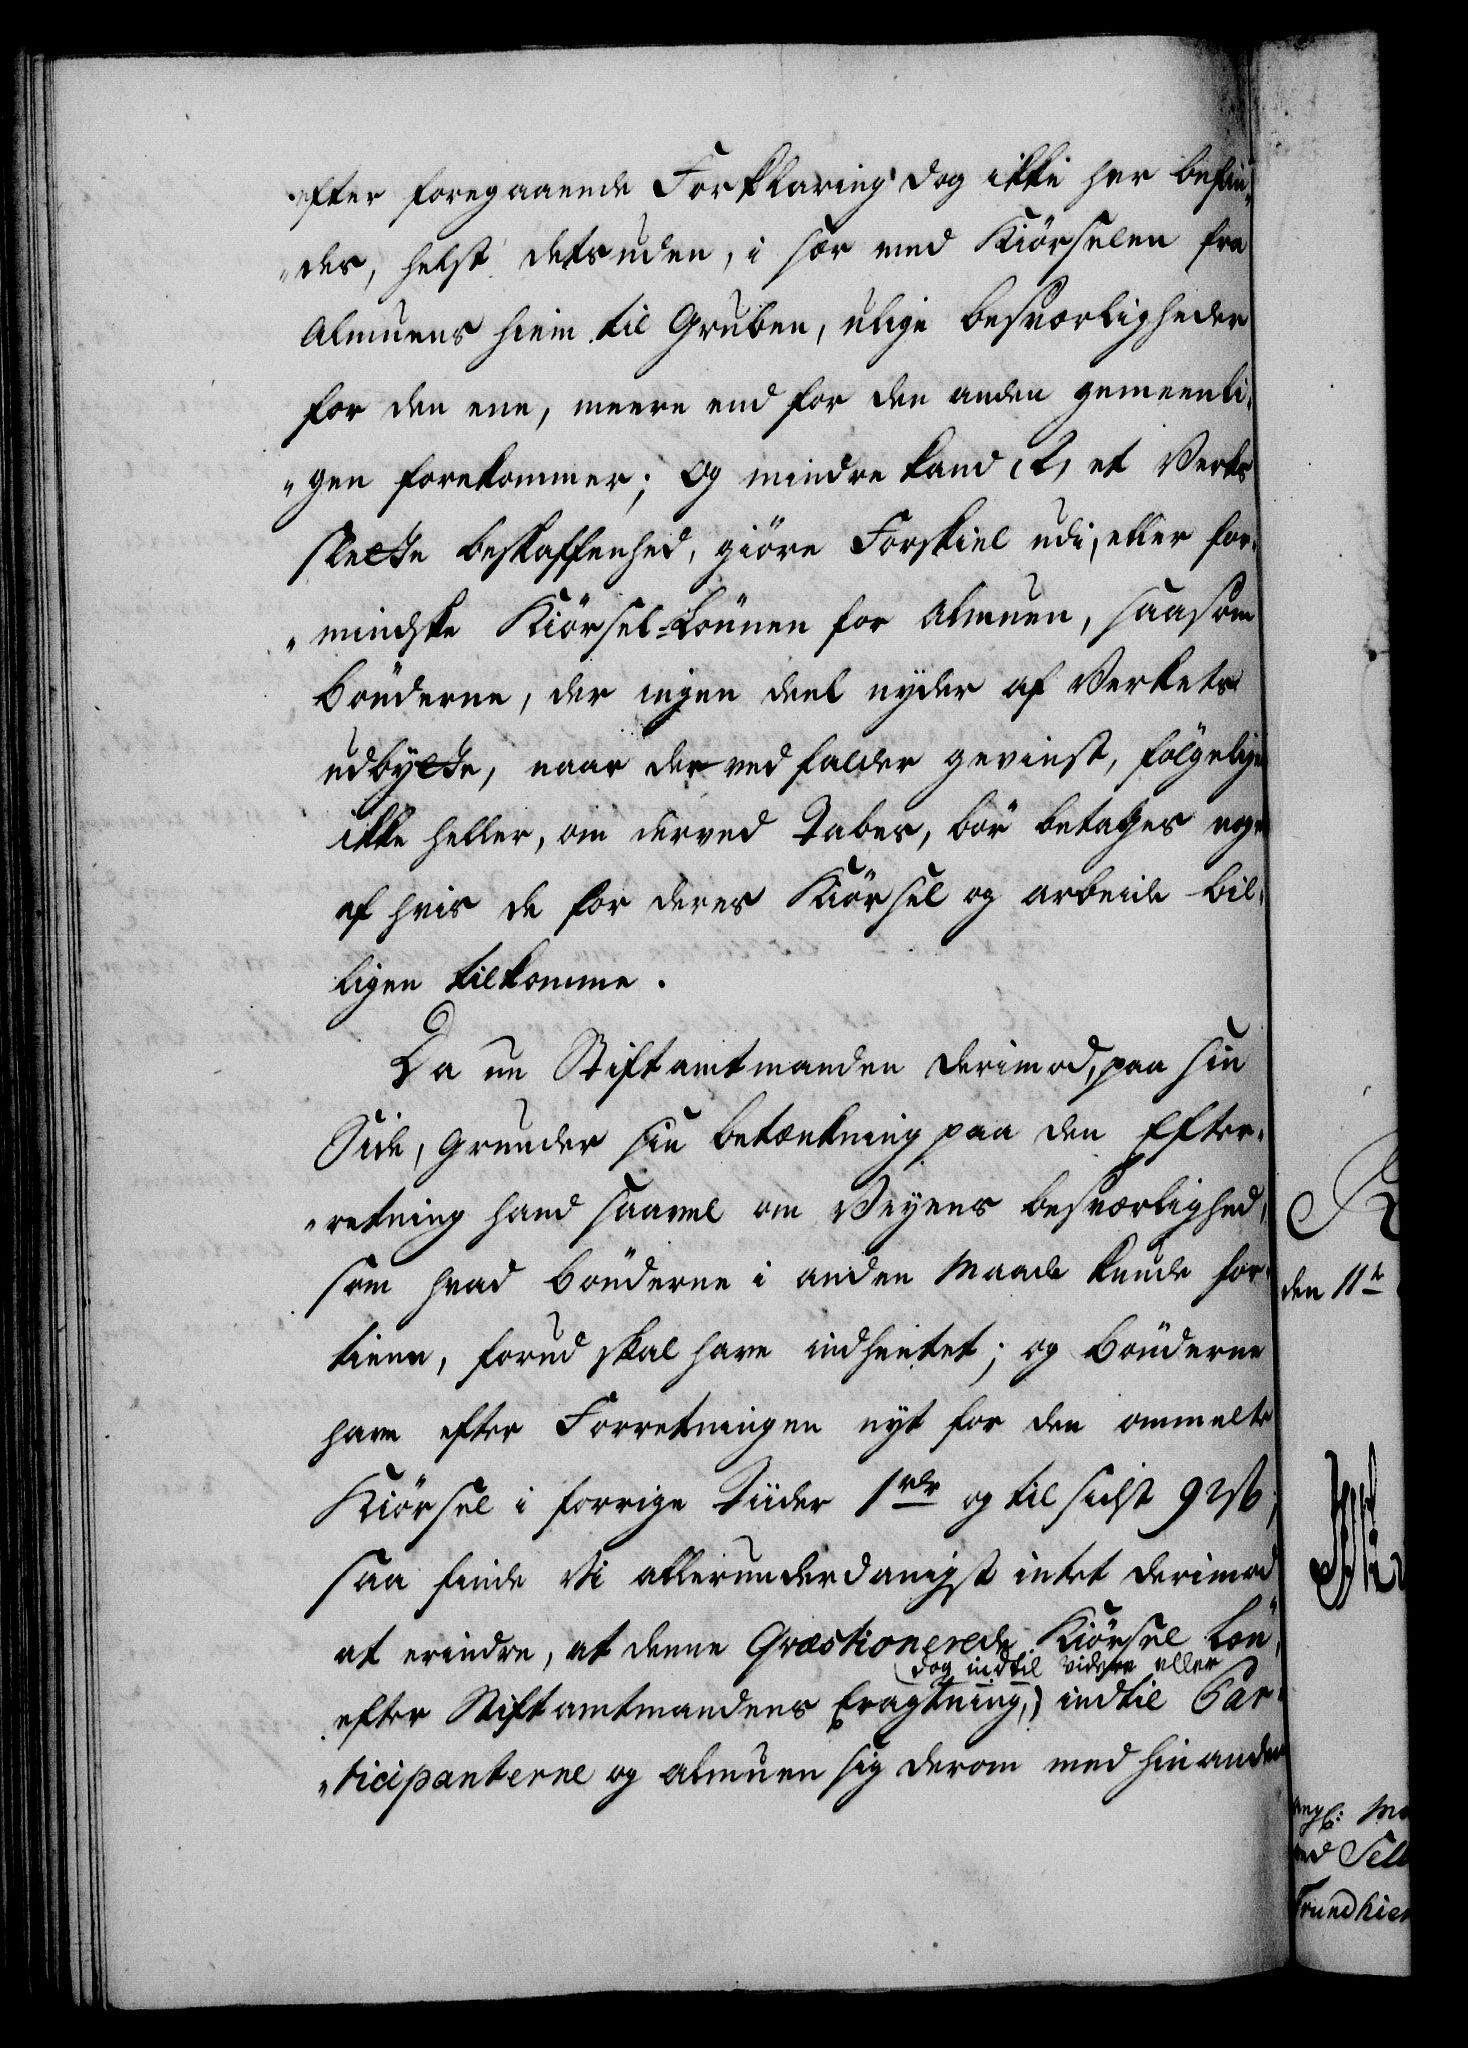 efter foregaaende Forklaring dog ikke her befin¬
„des, helst desuden, i sær med Kiörselen fra
Almuens hiem til Gruben, ulige besværligheder
for den ene, meere end for den anden gemeenli¬
„gen forekommer; Og mindre kand et Verks
slette beskaffenhed, giöre Forskiel udi, eller for¬
„mindske Kiörsel-Lönnen for Almuen, saasom
Bönderne, der ingen deel nyder af Verkets
udbytte, naar der ved falder gevinst, fölgelig
ikke heller, om derved Tabes, bör betages noge
af hvis de for deres Kiörsel og arbeide bil¬
ligen tilkomme.
Da nu Stiftamtmanden derimod, paa sin
Side, grunder sin betænkning paa den Efter¬
„retning hand saavel om Veyens besværlighed,
som hvad Bönderne i anden Maade kunde for¬
tiene, forud skal have indhentet; og Bönderne
have efter Forretningen nyt for den ommelte
Kiörsel i forrige Tiider 1 rdr og til sidst 92 s;
saa finde Vi allerunderdanigst intet derimod
at erindre, at denne Qvæstionerede Kiörsel Lön,
(dog indtil videre eller
efter Stiftamtmandens Eragtning,) indtil Par¬
„ticipanterne og Almuen sig derom med hinanden
den 11te
ang:
Trundhiem